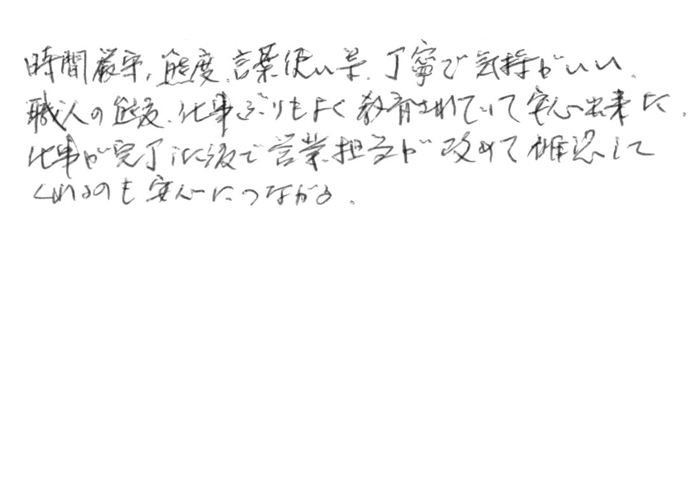 時間厳守、態度、言葉使い等、丁寧で気持がいい、
職人の態度、仕事ぶりもよく教育されていて安心出来た。
仕事が完了した後で営業担当が改めて確認して
くれるのも安心につながる。